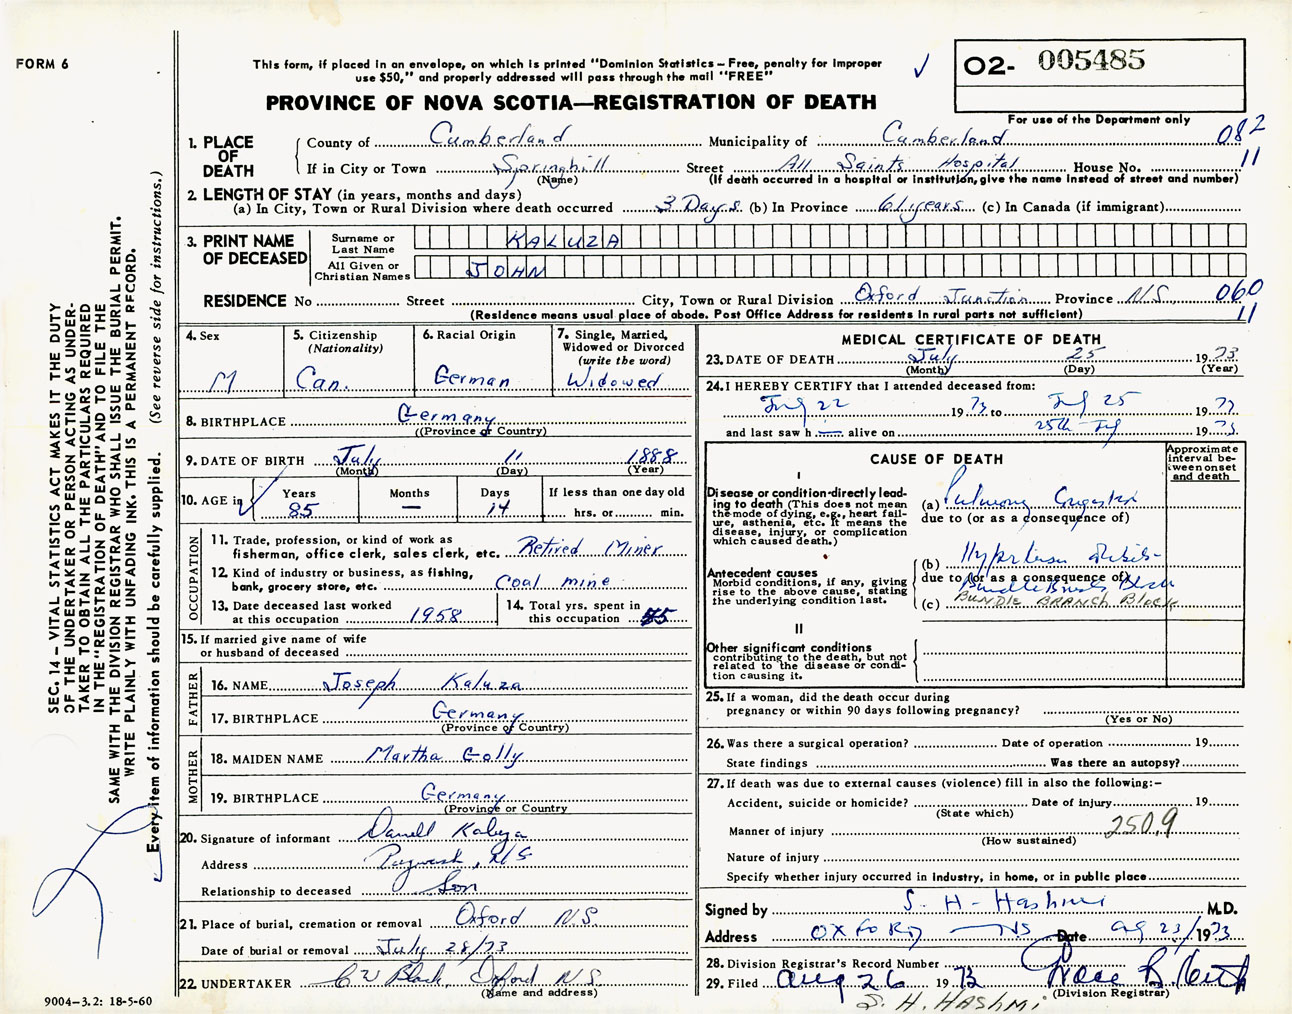 FORM 6
This form, if placed in an envelope, on which is printed "Dominion Statistics – Free, penalty for improper
use $50," and properly addressed will pass through the mail "FREE"
O2- 005485
For use of the Department only
PROVINCE OF NOVA SCOTIA—REGISTRATION OF DEATH
1. PLACE OF DEATH
County of Cumberland Municipality of Cumberland 082
If in City or Town Springhill Street All Saints Hospital House No. 11
(Name) (If death occurred in a hospital or institution, give the name instead of street and number)
2. LENGTH OF STAY (in years, months and days)
(a) In City, Town or Rural Division where death occurred 3 Days (b) In Province 61 years (c) In Canada (if immigrant)
3. PRINT NAME OF DECEASED
Surname or Last Name KALUZA
All Given or Christian Names JOHN
RESIDENCE No Street City, Town or Rural Division Oxford Junction Province N.S. 060
(Residence means usual place of abode. Post Office Address for residents in rural parts not sufficient) 11
4. Sex M
5. Citizenship (Nationality) Can.
6. Racial Origin German
7. Single, Married, Widowed or Divorced (write the word) Widowed
8. BIRTHPLACE Germany
((Province of Country)
9. DATE OF BIRTH July 11 1888
(Month) (Day) (Year)
10. AGE in Years 85 Months — Days 14 If less than one day old hrs. or min.
OCCUPATION
11. Trade, profession, or kind of work as
fisherman, office clerk, sales clerk, etc. Retired Miner
12. Kind of industry or business, as fishing,
bank, grocery store, etc. Coal mine
13. Date deceased last worked
at this occupation 1958
14. Total yrs. spent in
this occupation 45
15. If married give name of wife
or husband of deceased
FATHER
16. NAME Joseph Kaluza
17. BIRTHPLACE Germany
(Province of Country)
MOTHER
18. MAIDEN NAME Martha Golly
19. BIRTHPLACE Germany
(Province or Country
20. Signature of informant Kaluza
Address Pugwash, N.S
Relationship to deceased Son
21. Place of burial, cremation or removal Oxford N.S.
Date of burial or removal July 28/73
22. UNDERTAKER Oxford N.S.
(Name and address)
MEDICAL CERTIFICATE OF DEATH
23. DATE OF DEATH July 25 1973
(Month) (Day) (Year)
24. I HEREBY CERTIFY that I attended deceased from:
July 22 1973 to July 25 1973
and last saw h alive on 25th July 1973
CAUSE OF DEATH
Approximate interval between onset and death
I
Disease or condition directly lead-
ing to death (This does not mean
the mode of dying, e.g., heart fail-
ure, asthenia, etc. It means the
disease, injury, or complication
which caused death.)
(a) Pulmonary
due to (or as a consequence of)
(b)
due to (or as a consequence of)
(c) BUNDLE BRANCH BLOCK
Antecedent causes
Morbid conditions, if any, giving
rise to the above cause, stating
the underlying condition last.
II
Other significant conditions
contributing to the death, but not
related to the disease or condi-
tion causing it.
25. If a woman, did the death occur during
pregnancy or within 90 days following pregnancy?
(Yes or No)
26. Was there a surgical operation? Date of operation 19
State findings Was there an autopsy?
27. If death was due to external causes (violence) fill in also the following:–
Accident, suicide or homicide? Date of injury 19
(State which)
Manner of injury 250.9
(How sustained)
Nature of injury
Specify whether injury occurred in industry, in home, or in public place
Signed by S. H. Hashmi M.D.
Address OXFORD NS Date Aug 23/1973
28. Division Registrar's Record Number
29. Filed Aug 26 1973
(Division Registrar)
S. H. HASHMI
SEC. 14 – VITAL STATISTICS ACT MAKES IT THE DUTY
OF THE UNDERTAKER OR PERSON ACTING AS UNDER-
TAKER TO OBTAIN ALL THE PARTICULARS REQUIRED
IN THE "REGISTRATION OF DEATH" AND TO FILE THE
SAME WITH THE DIVISION REGISTRAR WHO SHALL ISSUE THE BURIAL PERMIT.
WRITE PLAINLY WITH UNFADING INK. THIS IS A PERMANENT RECORD.
Every item of information should be carefully supplied. (See reverse side for instructions.)
9004–3.2: 18-5-60